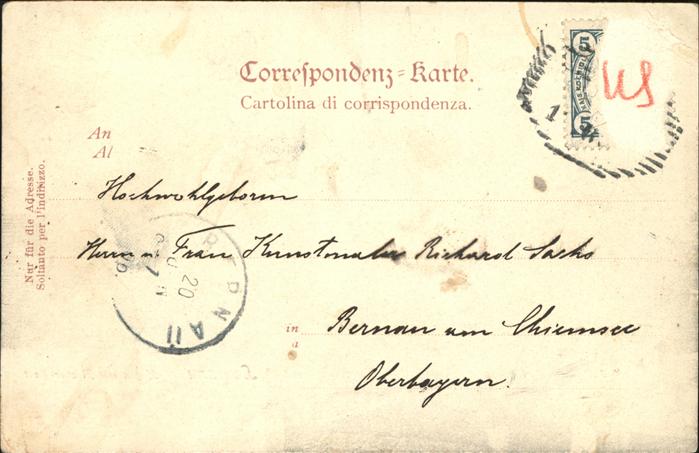 Correspondenz-Karte.
Cartolina di corrispondenza.
An
Al
Hochwohlgeboren
Herrn u. Frau Kunstmaler Richard Sachs
in
a
Bernau am Chiemsee
Oberbayern.
Nur für die Adresse.
Soltanto per l'indirizzo.
BERNAU
20
5
5